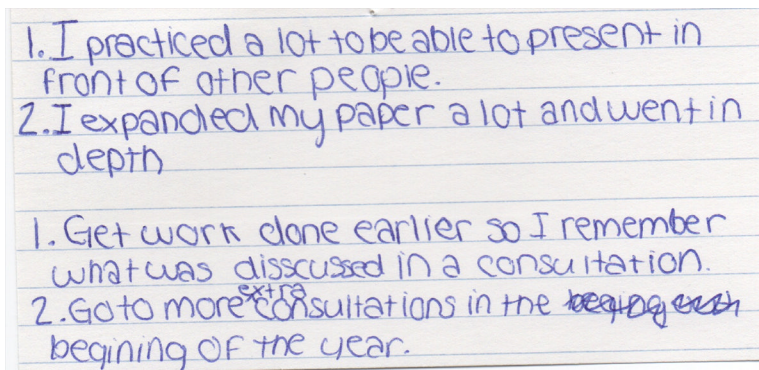 1. I practiced a lot to be able to present in
front of other people.
2. I expanded my paper a lot and went in
depth
1. Get work done earlier so I remember
what was disscussed in a consultation.
2. Go to more extra consultations in the
begining of the year.